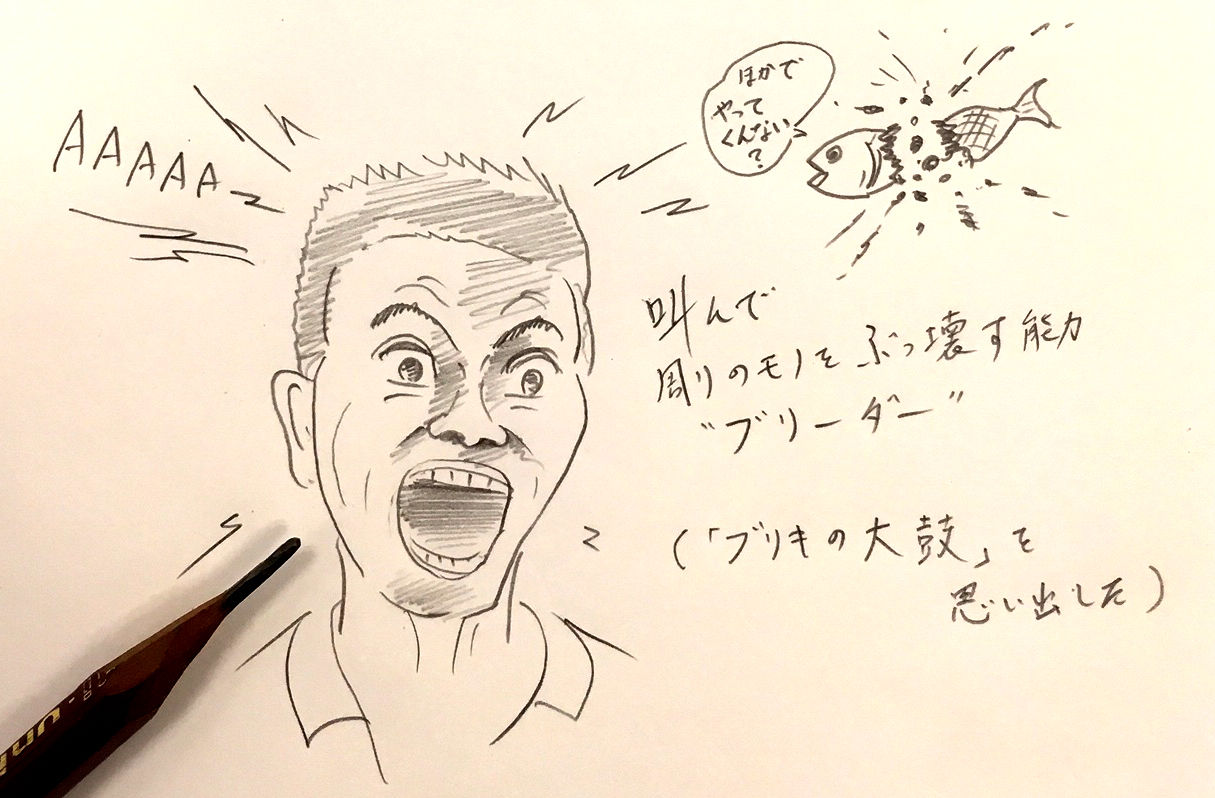 AAAAA
ほかで
やって
くんない
?
叫んで
周りのモノをぶっ壊す能力
"ブリーダー"
(「ブリキの太鼓」を
思い出した)
uni